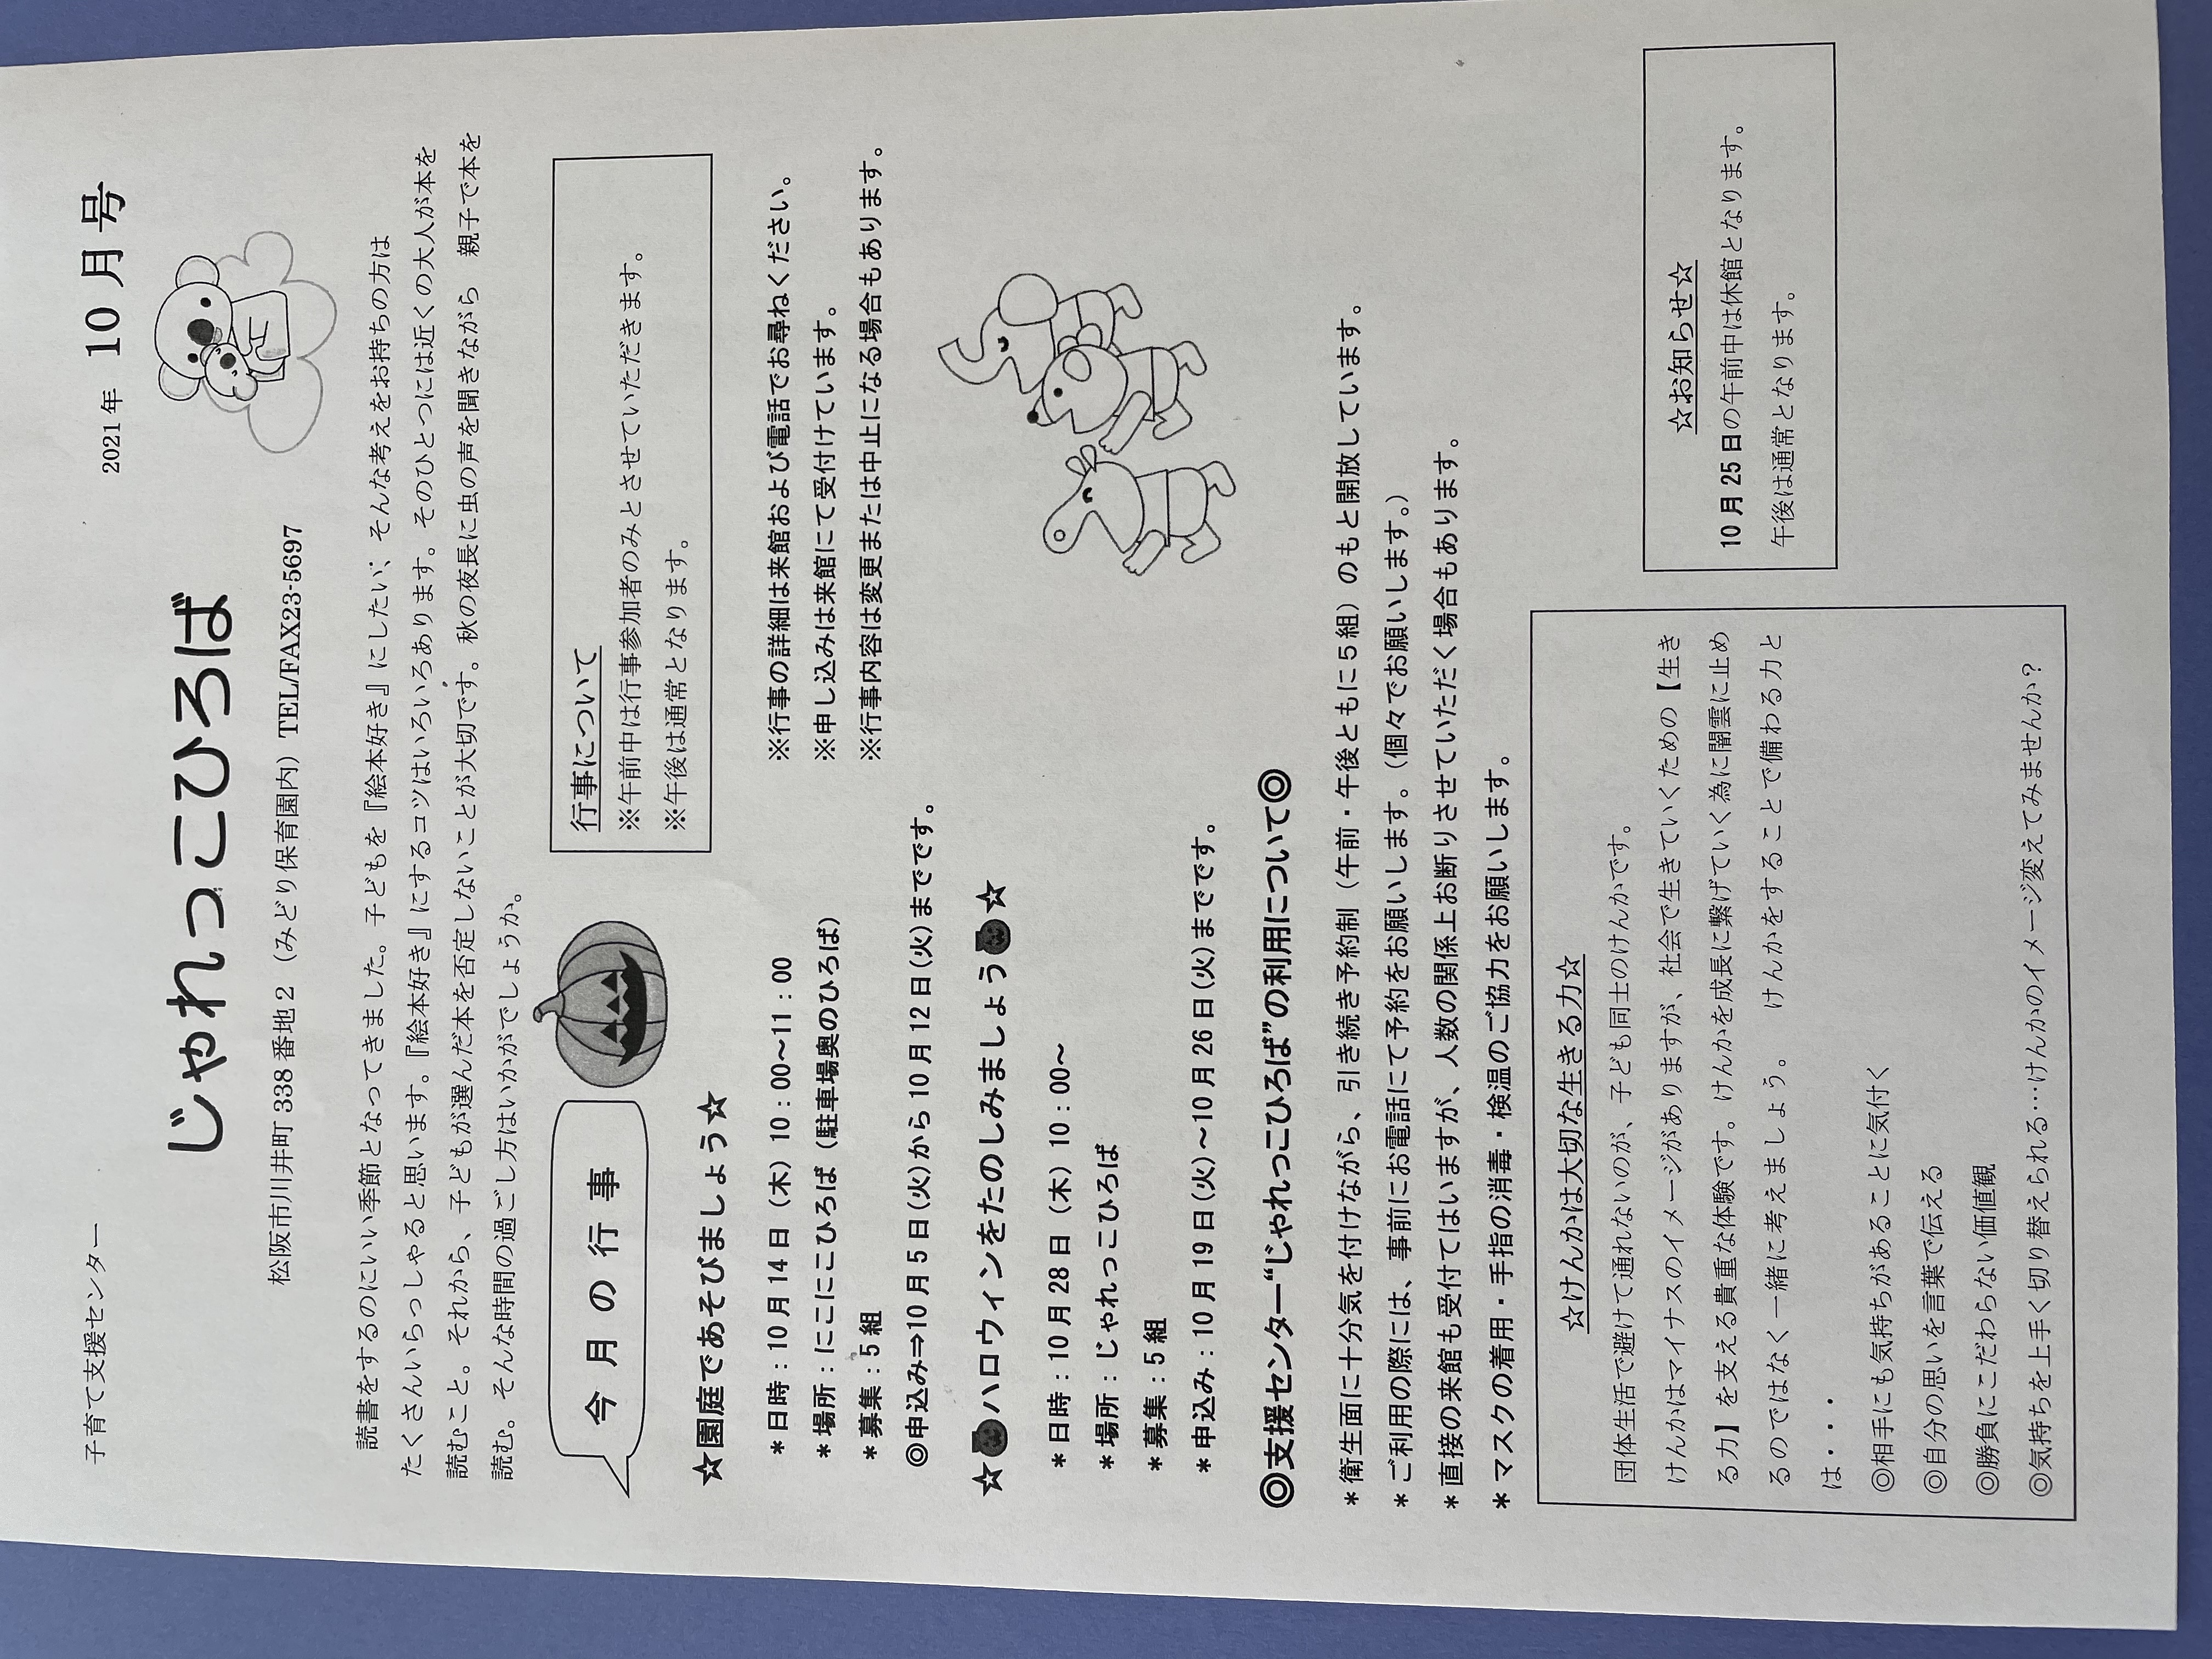 子育て支援センター
2021年 10月号
じゃれっこひろば
松阪市川井町 338 番地 2 （みどり保育園内）TEL/FAX23-5697
読書をするのにいい季節となってきました。子どもを『絵本好き』にしたい、そんな考えをお持ちの方は
たくさんいらっしゃると思います。『絵本好き』にするコツはいろいろあります。そのひとつには近くの大人が本を
読むこと。それから、子どもが選んだ本を否定しないことが大切です。秋の夜長に虫の声を聞きながら 親子で本を
読む。そんな時間の過ごし方はいかがでしょうか。
今月の行事
行事について
※午前中は行事参加者のみとさせていただきます。
※午後は通常となります。
☆園庭であそびましょう☆
＊日時：10月14日（木）10：00～11：00
＊場所：にこにこひろば（駐車場奥のひろば）
＊募集：5組
◎申込み⇒10月5日(火)から10月12日(火)までです。
※行事の詳細は来館および電話でお尋ねください。
※申し込みは来館にて受付けています。
※行事内容は変更または中止になる場合もあります。
☆ハロウィンをたのしみましょう☆
＊日時：10月28日（木）10：00～
＊場所：じゃれっこひろば
＊募集：5組
＊申込み：10月19日(火)～10月26日(火)までです。
◎支援センター“じゃれっこひろば”の利用について◎
＊衛生面に十分気を付けながら、引き続き予約制（午前・午後ともに５組）のもと開放しています。
＊ご利用の際には、事前にお電話にて予約をお願いします。（個々でお願いします。）
＊直接の来館も受付てはいますが、人数の関係上お断りさせていただく場合もあります。
＊マスクの着用・手指の消毒・検温のご協力をお願いします。
☆けんかは大切な生きる力☆
団体生活で避けて通れないのが、子ども同士のけんかです。
けんかはマイナスのイメージがありますが、社会で生きていくための【生き
る力】を支える貴重な体験です。けんかを成長に繋げていく為に闇雲に止め
るのではなく一緒に考えましょう。 けんかをすることで備わる力と
は・・・
◎相手にも気持ちがあることに気付く
◎自分の思いを言葉で伝える
◎勝負にこだわらない価値観
◎気持ちを上手く切り替えられる…けんかのイメージ変えてみませんか？
☆お知らせ☆
10月25日の午前中は休館となります。
午後は通常となります。